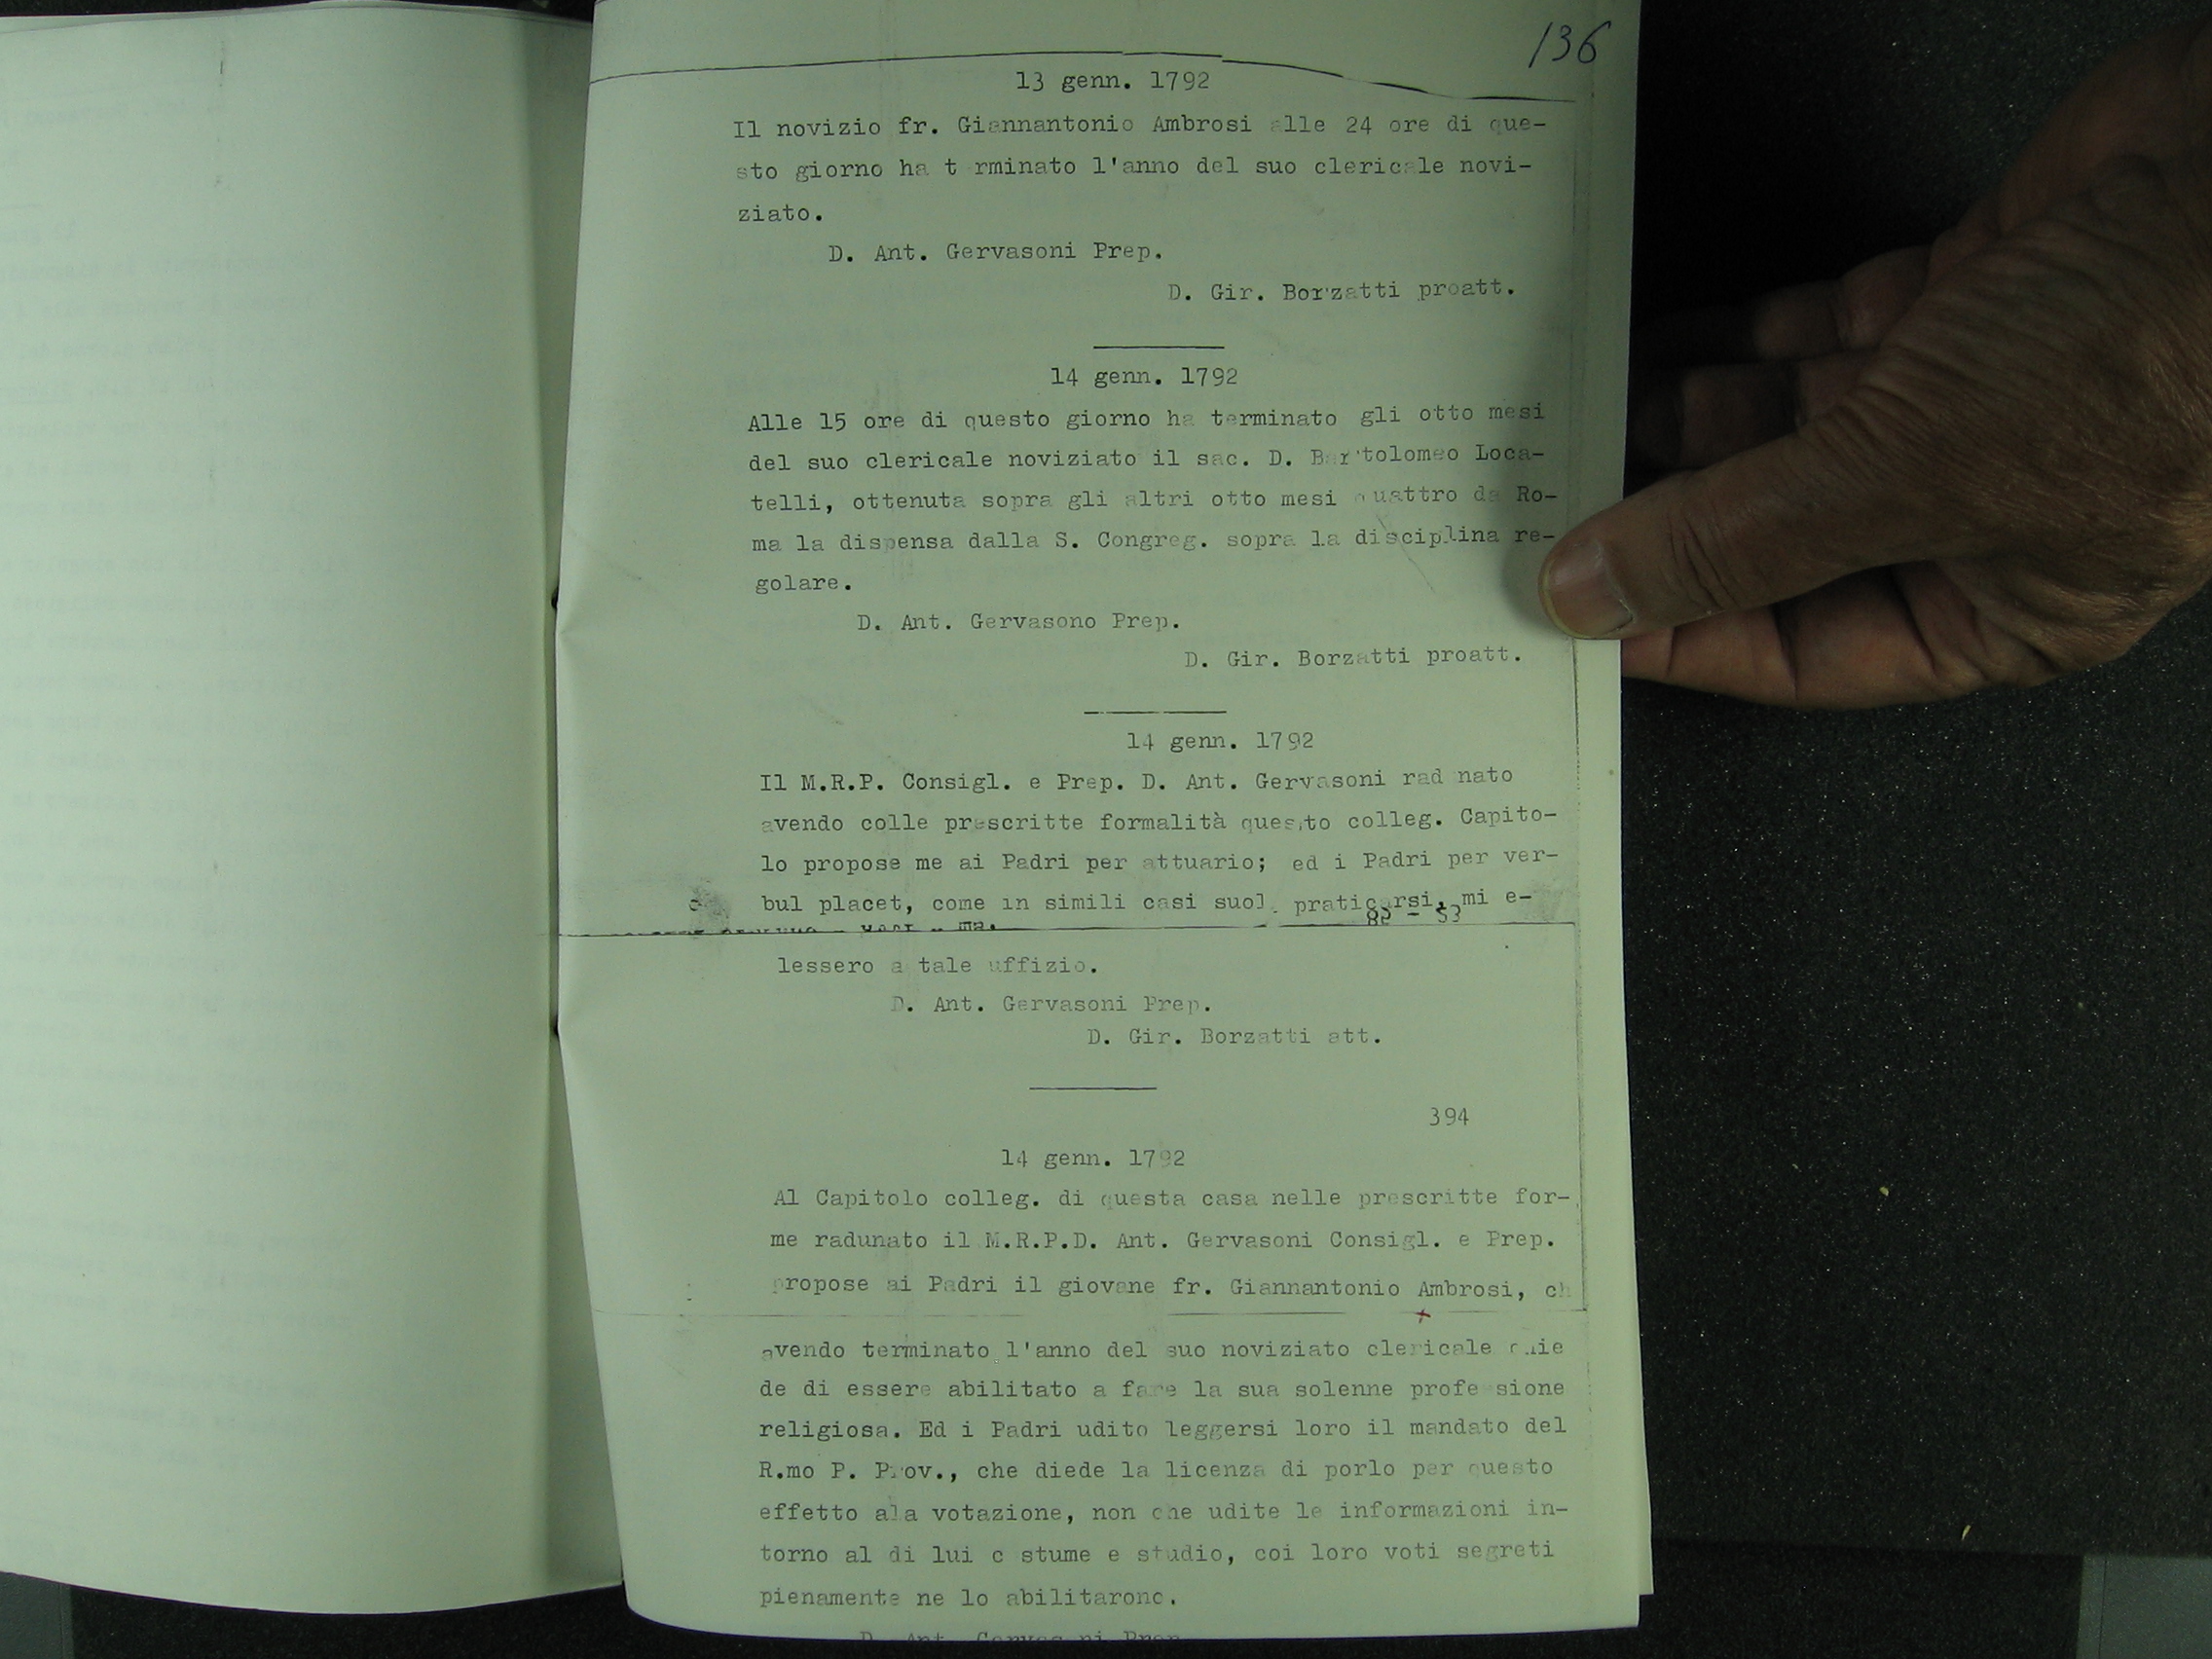 136
13 genn. 1792
Il novizio fr. Giannantonio Ambrosi alle 24 ore di que-
sto giorno ha t rminato l'anno del suo clericale novi-
ziato.
D. Ant. Gervasoni Prep.
D. Gir. Borzatti proatt.
14 genn. 1792
Alle 15 ore di questo giorno ha terminato gli otto mesi
del suo clericale noviziato il sac. D. Bartolomeo Loca-
telli, ottenuta sopra gli altri otto mesi quattro da Ro-
ma la dispensa dalla S. Congreg. sopra la disciplina re-
golare.
D. Ant. Gervasono Prep.
D. Gir. Borzatti proatt.
14 genn. 1792
Il M.R.P. Consigl. e Prep. D. Ant. Gervasoni rad nato
avendo colle prescritte formalità questo colleg. Capito-
lo propose me ai Padri per attuario; ed i Padri per ver-
bul placet, come in simili casi suol praticarsi, mi e-
lessero a tale uffizio.
D. Ant. Gervasoni Prep.
D. Gir. Borzatti att.
394
14 genn. 1792
Al Capitolo colleg. di questa casa nelle prescritte for-
me radunato il M.R.P.D. Ant. Gervasoni Consigl. e Prep.
propose ai Padri il giovane fr. Giannantonio Ambrosi, ch
avendo terminato l'anno del suo noviziato clericale chie
de di essere abilitato a fare la sua solenne professione
religiosa. Ed i Padri udito leggersi loro il mandato del
R.mo P. Prov., che diede la licenza di porlo per questo
effetto ala votazione, non che udite le informazioni in-
torno al di lui c stume e studio, coi loro voti segreti
pienamente ne lo abilitarono.
D. Ant. Gervasoni Prep.